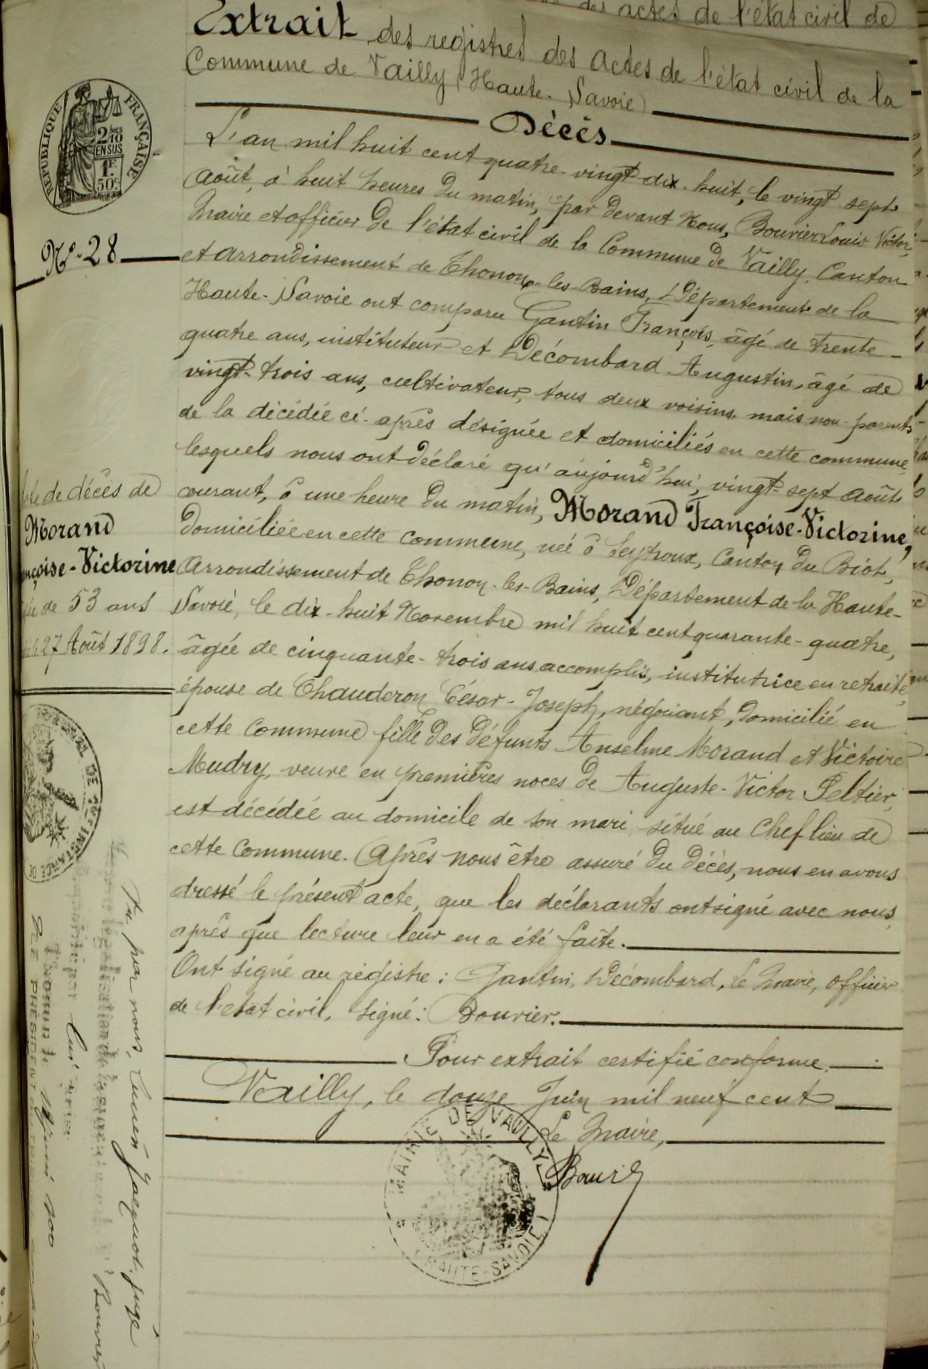 des actes de l'état civil de
Extrait des registres des actes de l'état civil de la
Commune de Vailly (Haute-Savoie)
Décès
RÉPUBLIQUE FRANÇAISE
2/10
EN SUS
1F
50c
N°-28
L'an mil huit cent quatre-vingt-dix-huit, le vingt sept
Août, à huit heures du matin, par devant Nous, Bouvier Louis Victor,
Maire et officier de l'état civil de la Commune de Vailly, Canton
et arrondissement de Thonon-les-Bains, Département de la
Haute-Savoie ont comparu Gantin François, âgé de trente-
quatre ans, instituteur et Décombard Augustin, âgé de
vingt-trois ans, cultivateur, tous deux voisins mais non parents
de la décédée ci-après désignée et domiciliés en cette commune,
lesquels nous ont déclaré qu'aujourd'hui, vingt-sept août
courant, à une heure du matin, Morand Françoise-Victorine,
domiciliée en cette commune, née à Seytroux, Canton du Biot,
Arrondissement de Thonon-les-Bains, Département de la Haute-
Savoie, le dix-huit Novembre mil huit cent quarante-quatre,
âgée de cinquante-trois ans accomplis, institutrice en retraite,
épouse de Chauderon César-Joseph, négociant, domicilié en
cette commune fille des défunts Anselme Morand et Victoire
Mudry, veuve en premières noces de Auguste-Victor Peltier,
est décédée au domicile de son mari, situé au Chef lieu de
cette Commune. Après nous être assuré du décès, nous en avons
dressé le présent acte, que les déclarants ont signé avec nous,
après que lecture leur en a été faite.
Ont signé au registre: Gantin, Décombard, Le Maire, officier
de l'état civil, signé: Bouvier.
Pour extrait certifié conforme.
Vailly, le douze Juin mil neuf cent
Le Maire,
Bouvier
MAIRIE DE VAILLY
HAUTE-SAVOIE
de décès de
Morand
nçoise-Victorine
de 53 ans
27 Août 1898.
INSTANCE DE
Vu par nous, Lucien Jacquot, juge
légalisation de la signature de M
Bouvier
LE PRÉSIDENT